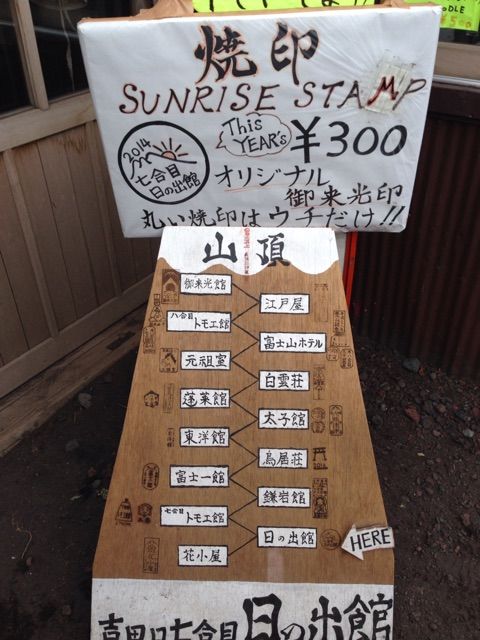 焼印
SUNRISE STAMP
2014
七合目
日の出館
This
YEAR'S
¥300
オリジナル
御来光印
丸い焼印はウチだけ!!
山頂
御来光館
江戸屋
八合目トモエ館
富士山ホテル
元祖室
白雲荘
蓬莱館
太子館
東洋館
鳥居荘
富士一館
鎌岩館
七合目トモエ館
日の出館
HERE
花小屋
吉田口七合目日の出館